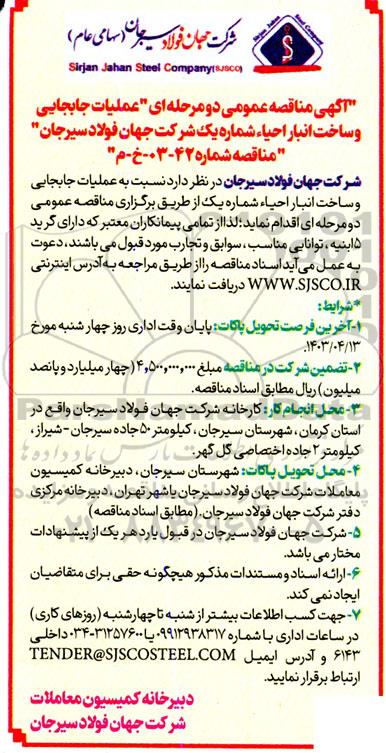 شرکت جهان فولاد سیرجان (سهامی عام)
Sirjan Jahan Steel Company (SJSCO)
Sirjan Jahan Steel Company
"آگهی مناقصه عمومی دو مرحله ای "عملیات جابجایی
و ساخت انبار احیاء شماره یک شرکت جهان فولاد سیرجان"
"مناقصه شماره ۴۲-۰۳-خ-م"
شرکت جهان فولاد سیرجان در نظر دارد نسبت به عملیات جابجایی
و ساخت انبار احیاء شماره یک از طریق برگزاری مناقصه عمومی
دو مرحله ای اقدام نماید؛ لذا از تمامی پیمانکاران معتبر که دارای گرید
۵ ابنیه، توانایی مناسب، سوابق و تجارب مورد قبول می باشند، دعوت
به عمل می آید اسناد مناقصه را از طریق مراجعه به آدرس اینترنتی
WWW.SJSCO.IR دریافت نمایند.
*شرایط:
۱-آخرین فرصت تحویل پاکات: پایان وقت اداری روز چهارشنبه مورخ
۱۴۰۳/۰۴/۱۳.
۲-تضمین شرکت در مناقصه مبلغ ۴,۵۰۰,۰۰۰,۰۰۰ (چهار میلیارد و پانصد
میلیون) ریال مطابق اسناد مناقصه.
۳-محل انجام کار: کارخانه شرکت جهان فولاد سیرجان واقع در
استان کرمان، شهرستان سیرجان، کیلومتر ۵۰ جاده سیرجان - شیراز،
کیلومتر ۲ جاده اختصاصی گل گهر.
۴-محل تحویل پاکات: شهرستان سیرجان، دبیرخانه کمیسیون
معاملات شرکت جهان فولاد سیرجان یا شهر تهران، دبیرخانه مرکزی
دفتر شرکت جهان فولاد سیرجان. (مطابق اسناد مناقصه)
۵-شرکت جهان فولاد سیرجان در قبول یا رد هر یک از پیشنهادات
مختار می باشد.
۶-ارائه اسناد و مستندات مذکور هیچگونه حقی برای متقاضیان
ایجاد نمی کند.
۷-جهت کسب اطلاعات بیشتر از شنبه تا چهارشنبه (روزهای کاری)
در ساعات اداری با شماره ۰۹۹۱۲۹۳۸۳۱۷ یا ۳۱۲۵۷۶۰۰-۰۳۴ داخلی
۶۱۴۳ و آدرس ایمیل TENDER@SJSCOSTEEL.COM
ارتباط برقرار نمایید.
دبیرخانه کمیسیون معاملات
شرکت جهان فولاد سیرجان